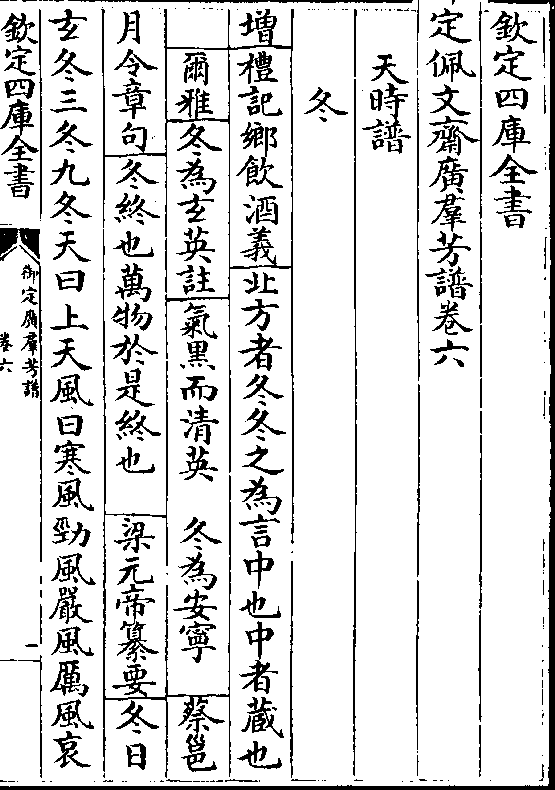 欽定四庫全書
定佩文齋廣羣芳譜卷六
天時譜
冬
增禮記鄉飲酒義北方者冬冬之為言中也中者藏也
爾雅冬為玄英註氣黑而清英 冬為安寧 蔡邕
月令章句冬終也萬物於是終也 梁元帝纂要冬曰
玄冬三冬九冬天曰上天風曰寒風勁風嚴風厲風哀
欽定四庫全書
御定廣羣芳譜
卷六
一